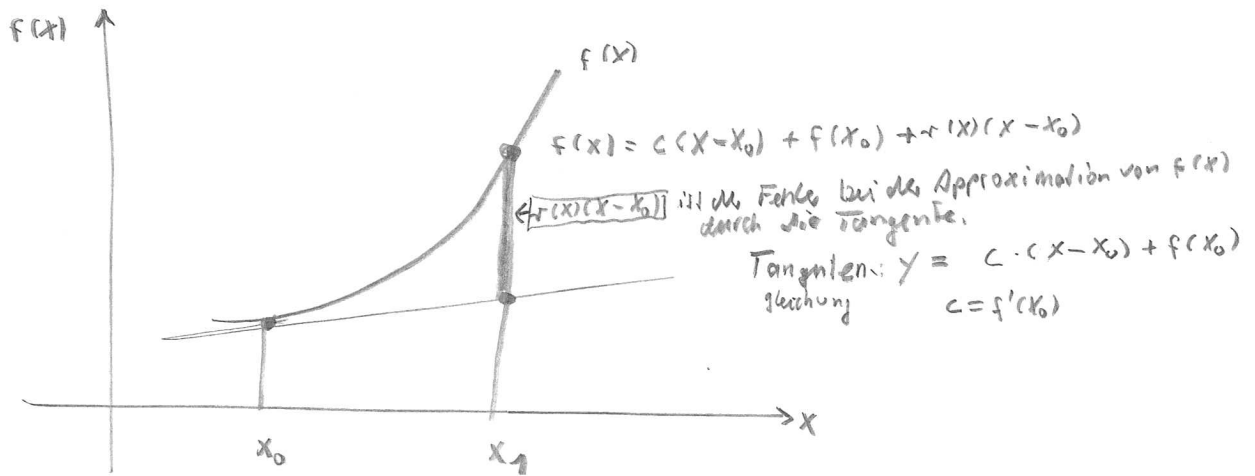 f(x)
f(x)
f(x) = c(x-x₀) + f(x₀) + r(x)(x-x₀)
r(x)(x-x₀) ist der Fehler bei der Approximation von f(x)
durch die Tangente.
Tangenten: y = c·(x-x₀) + f(x₀)
gleichung c = f'(x₀)
x
x₀ x₁